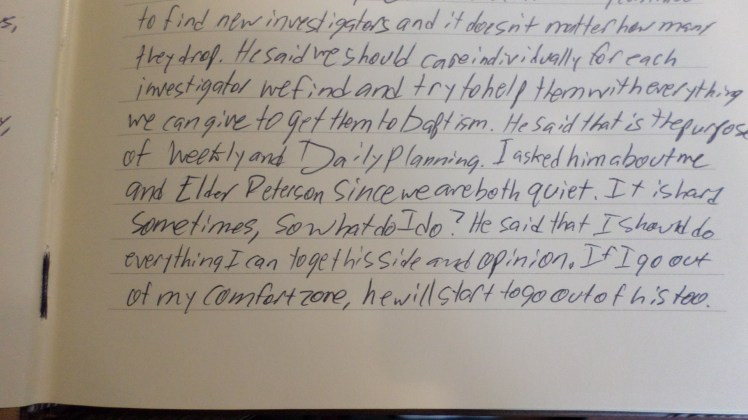 to find new investigators and it doesn't matter how many
they drop. He said we should care individually for each
investigator we find and try to help them with everything
we can give to get them to baptism. He said that is the purpose
of Weekly and Daily Planning. I asked him about me
and Elder Peterson since we are both quiet. It is hard
sometimes, so what do I do? He said that I should do
everything I can to get his side and opinion. If I go out
of my comfort zone, he will start to go out of his too.